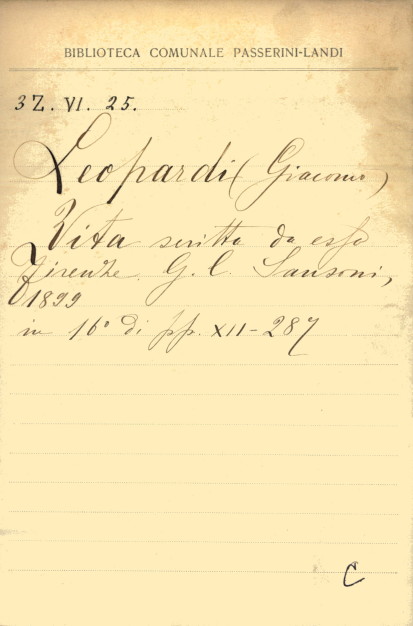 BIBLIOTECA COMUNALE PASSERINI-LANDI
3Z. VI. 25.
Leopardi (Giacomo)
Vita scritta da esso
Firenze. G. C. Sansoni,
1899
in 16° di pp. XII-287
C